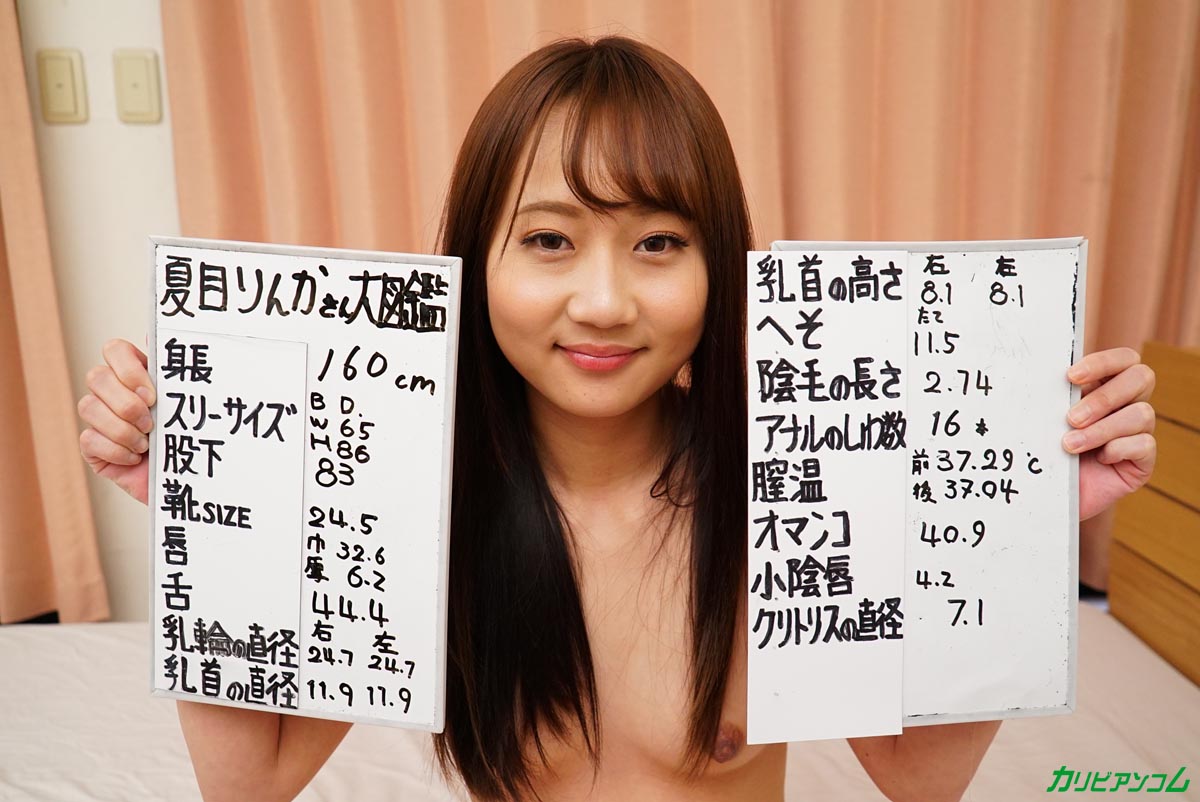 夏目りんかさん大図鑑
身長 160cm
スリーサイズ B D. W 65 H 86
股下 83
靴SIZE 24.5
唇 巾 32.6 厚 6.2
舌 44.4
乳輪の直径 右 24.7 左 24.7
乳首の直径 11.9 11.9
乳首の高さ 右 8.1 左 8.1
へそ たて 11.5
陰毛の長さ 2.74
アナルのしわ数 16本
膣温 前 37.29℃ 後 37.04
オマンコ 40.9
小陰唇 4.2
クリトリスの直径 7.1
カリビアンコム